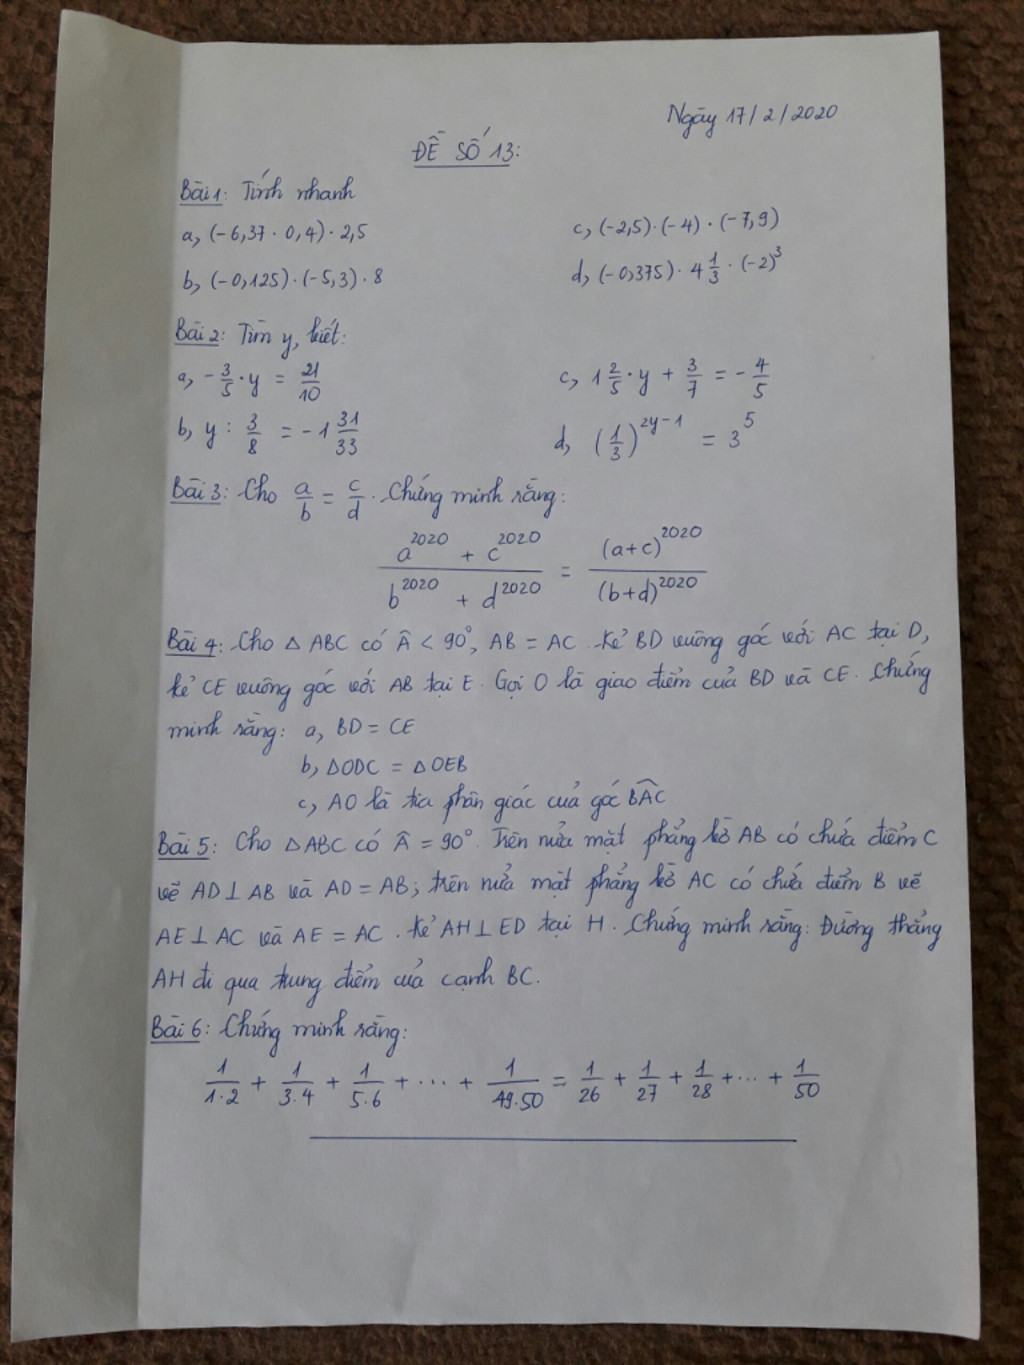 Ngày 17/2/2020
ĐỀ SỐ 13:
Bài 1: Tính nhanh
a, (-6,37 · 0,4) · 2,5
c, (-2,5) · (-4) · (-7,9)
b, (-0,125) · (-5,3) · 8
d, (-0,375) · 4 1/3 · (-2)^3
Bài 2: Tìm y, biết:
a, - 3/5 · y = 21/10
c, 1 2/5 · y + 3/7 = - 4/5
b, y : 3/8 = -1 31/33
d, (1/3)^(2y-1) = 3^5
Bài 3: Cho a/b = c/d. Chứng minh rằng:
(a^2020 + c^2020)/(b^2020 + d^2020) = (a+c)^2020/(b+d)^2020
Bài 4: Cho △ ABC có Â < 90°, AB = AC. Kẻ BD vuông góc với AC tại D,
kẻ CE vuông góc với AB tại E. Gọi O là giao điểm của BD và CE. Chứng
minh rằng: a, BD = CE
b, △ODC = △OEB
c, AO là tia phân giác của góc BÂC
Bài 5: Cho △ABC có Â = 90°. Trên nửa mặt phẳng bờ AB có chứa điểm C
vẽ AD ⊥ AB và AD = AB; trên nửa mặt phẳng bờ AC có chứa điểm B vẽ
AE ⊥ AC và AE = AC. Kẻ AH ⊥ ED tại H. Chứng minh rằng: Đường thẳng
AH đi qua trung điểm của cạnh BC.
Bài 6: Chứng minh rằng:
1/1·2 + 1/3·4 + 1/5·6 + ··· + 1/49·50 = 1/26 + 1/27 + 1/28 + ··· + 1/50